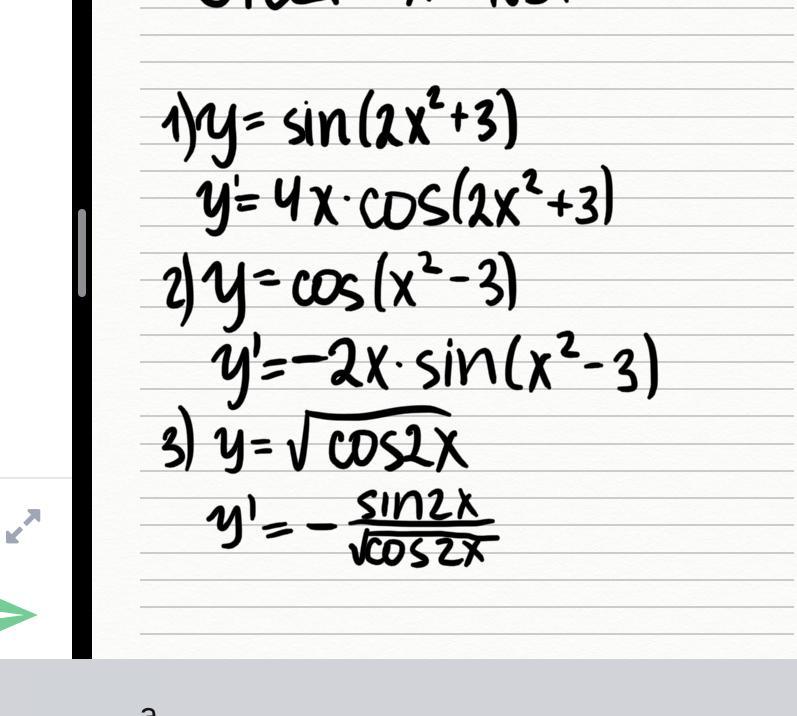 1) y = sin(2x²+3)
y' = 4x·cos(2x²+3)
2) y = cos(x²-3)
y' = -2x·sin(x²-3)
3) y = √cos2x
y' = - sin2x
√cos2x